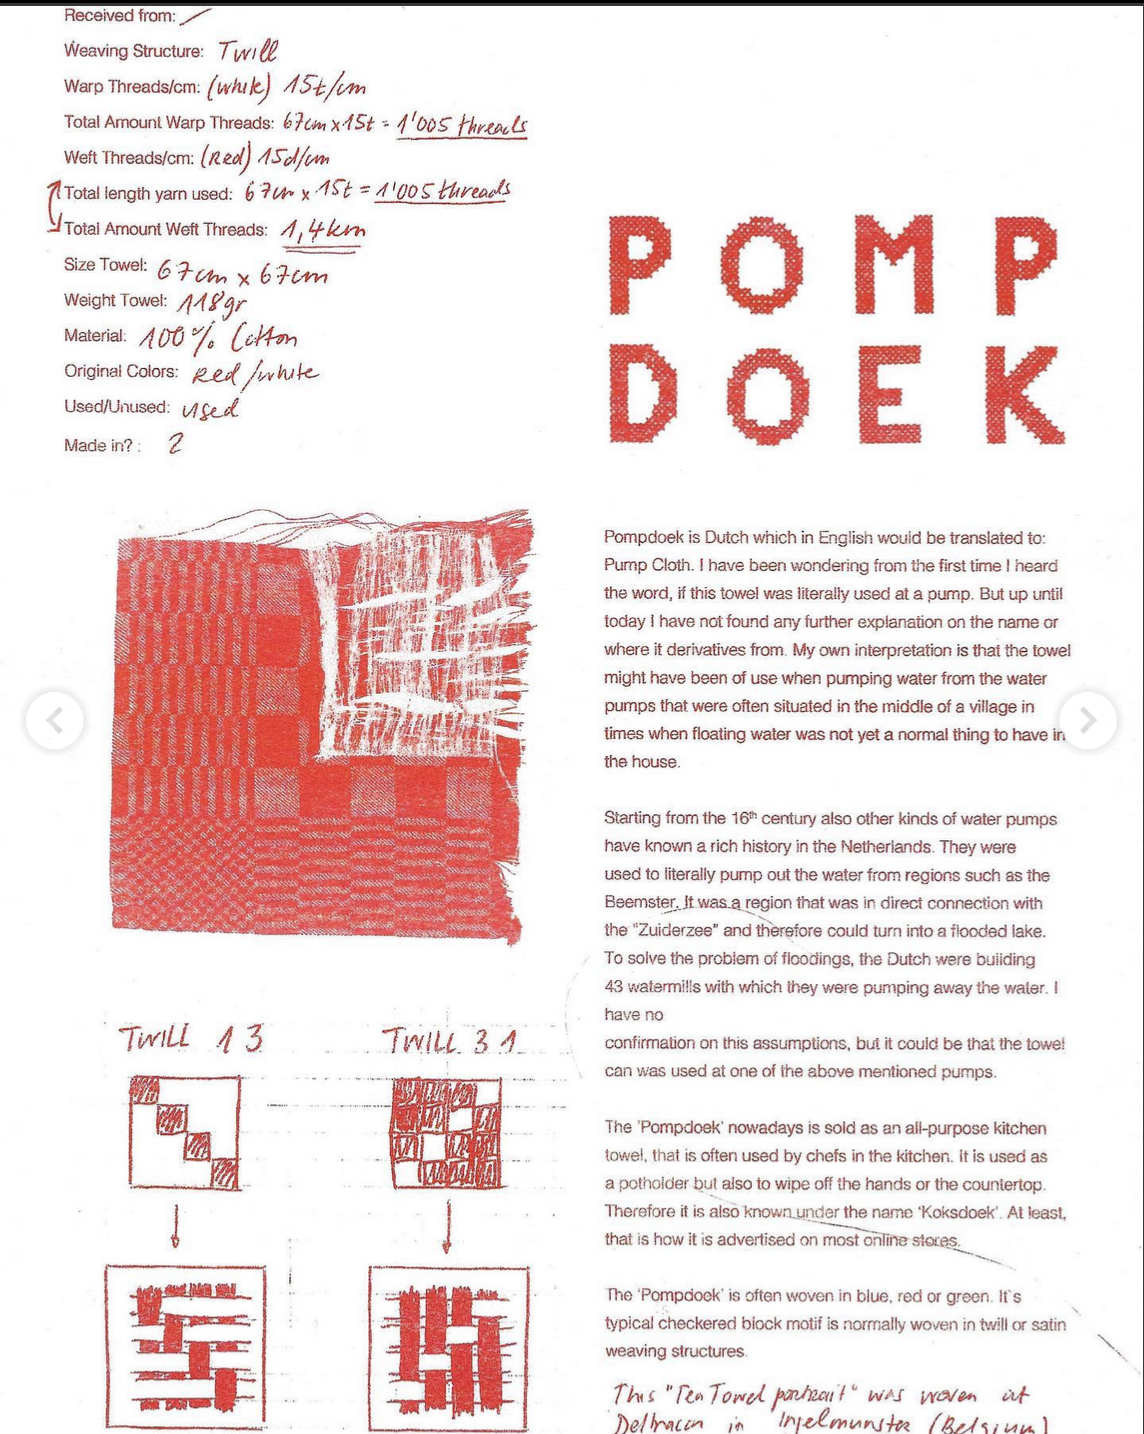 Received from: /
Weaving Structure: Twill
Warp Threads/cm: (white) 15t/cm
Total Amount Warp Threads: 67cm x 15t = 1'005 threads
Weft Threads/cm: (Red) 15d/cm
Total length yarn used: 67cm x 15t = 1'005 threads
Total Amount Weft Threads: 1,4km
Size Towel: 67cm x 67cm
Weight Towel: 118gr
Material: 100% Cotton
Original Colors: Red/white
Used/Unused: used
Made in? : ?
POMP
DOEK
Pompdoek is Dutch which in English would be translated to:
Pump Cloth. I have been wondering from the first time I heard
the word, if this towel was literally used at a pump. But up until
today I have not found any further explanation on the name or
where it derivatives from. My own interpretation is that the towel
might have been of use when pumping water from the water
pumps that were often situated in the middle of a village in
times when floating water was not yet a normal thing to have in
the house.
Starting from the 16th century also other kinds of water pumps
have known a rich history in the Netherlands. They were
used to literally pump out the water from regions such as the
Beemster. It was a region that was in direct connection with
the "Zuiderzee" and therefore could turn into a flooded lake.
To solve the problem of floodings, the Dutch were building
43 watermills with which they were pumping away the water. I
have no
confirmation on this assumptions, but it could be that the towel
can was used at one of the above mentioned pumps.
The 'Pompdoek' nowadays is sold as an all-purpose kitchen
towel, that is often used by chefs in the kitchen. It is used as
a potholder but also to wipe off the hands or the countertop.
Therefore it is also known under the name 'Koksdoek'. At least,
that is how it is advertised on most online stores.
The 'Pompdoek' is often woven in blue, red or green. It`s
typical checkered block motif is normally woven in twill or satin
weaving structures.
This "Tea Towel portrait" was woven at
in Ingelmunster (Belgium)
TWILL 1 3
TWILL 3 1